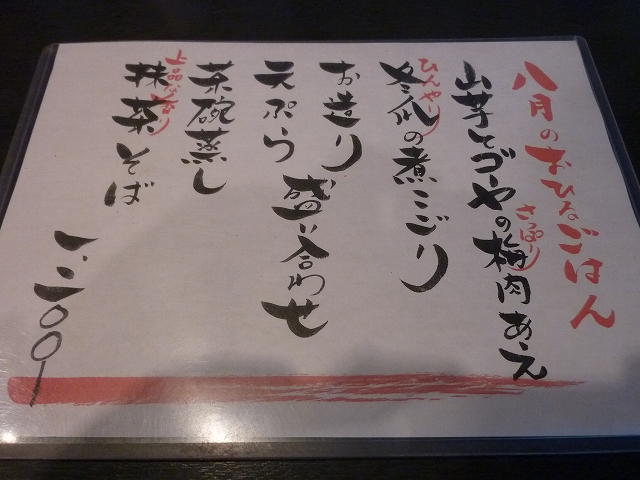 八月のおひるごはん
山芋とゴーヤの梅肉あえ
さっぱり
冬瓜の煮こごり
ひんやり
お造り
天ぷら 盛り合わせ
茶碗蒸し
抹茶そば
上品な香り
一、二〇〇ー